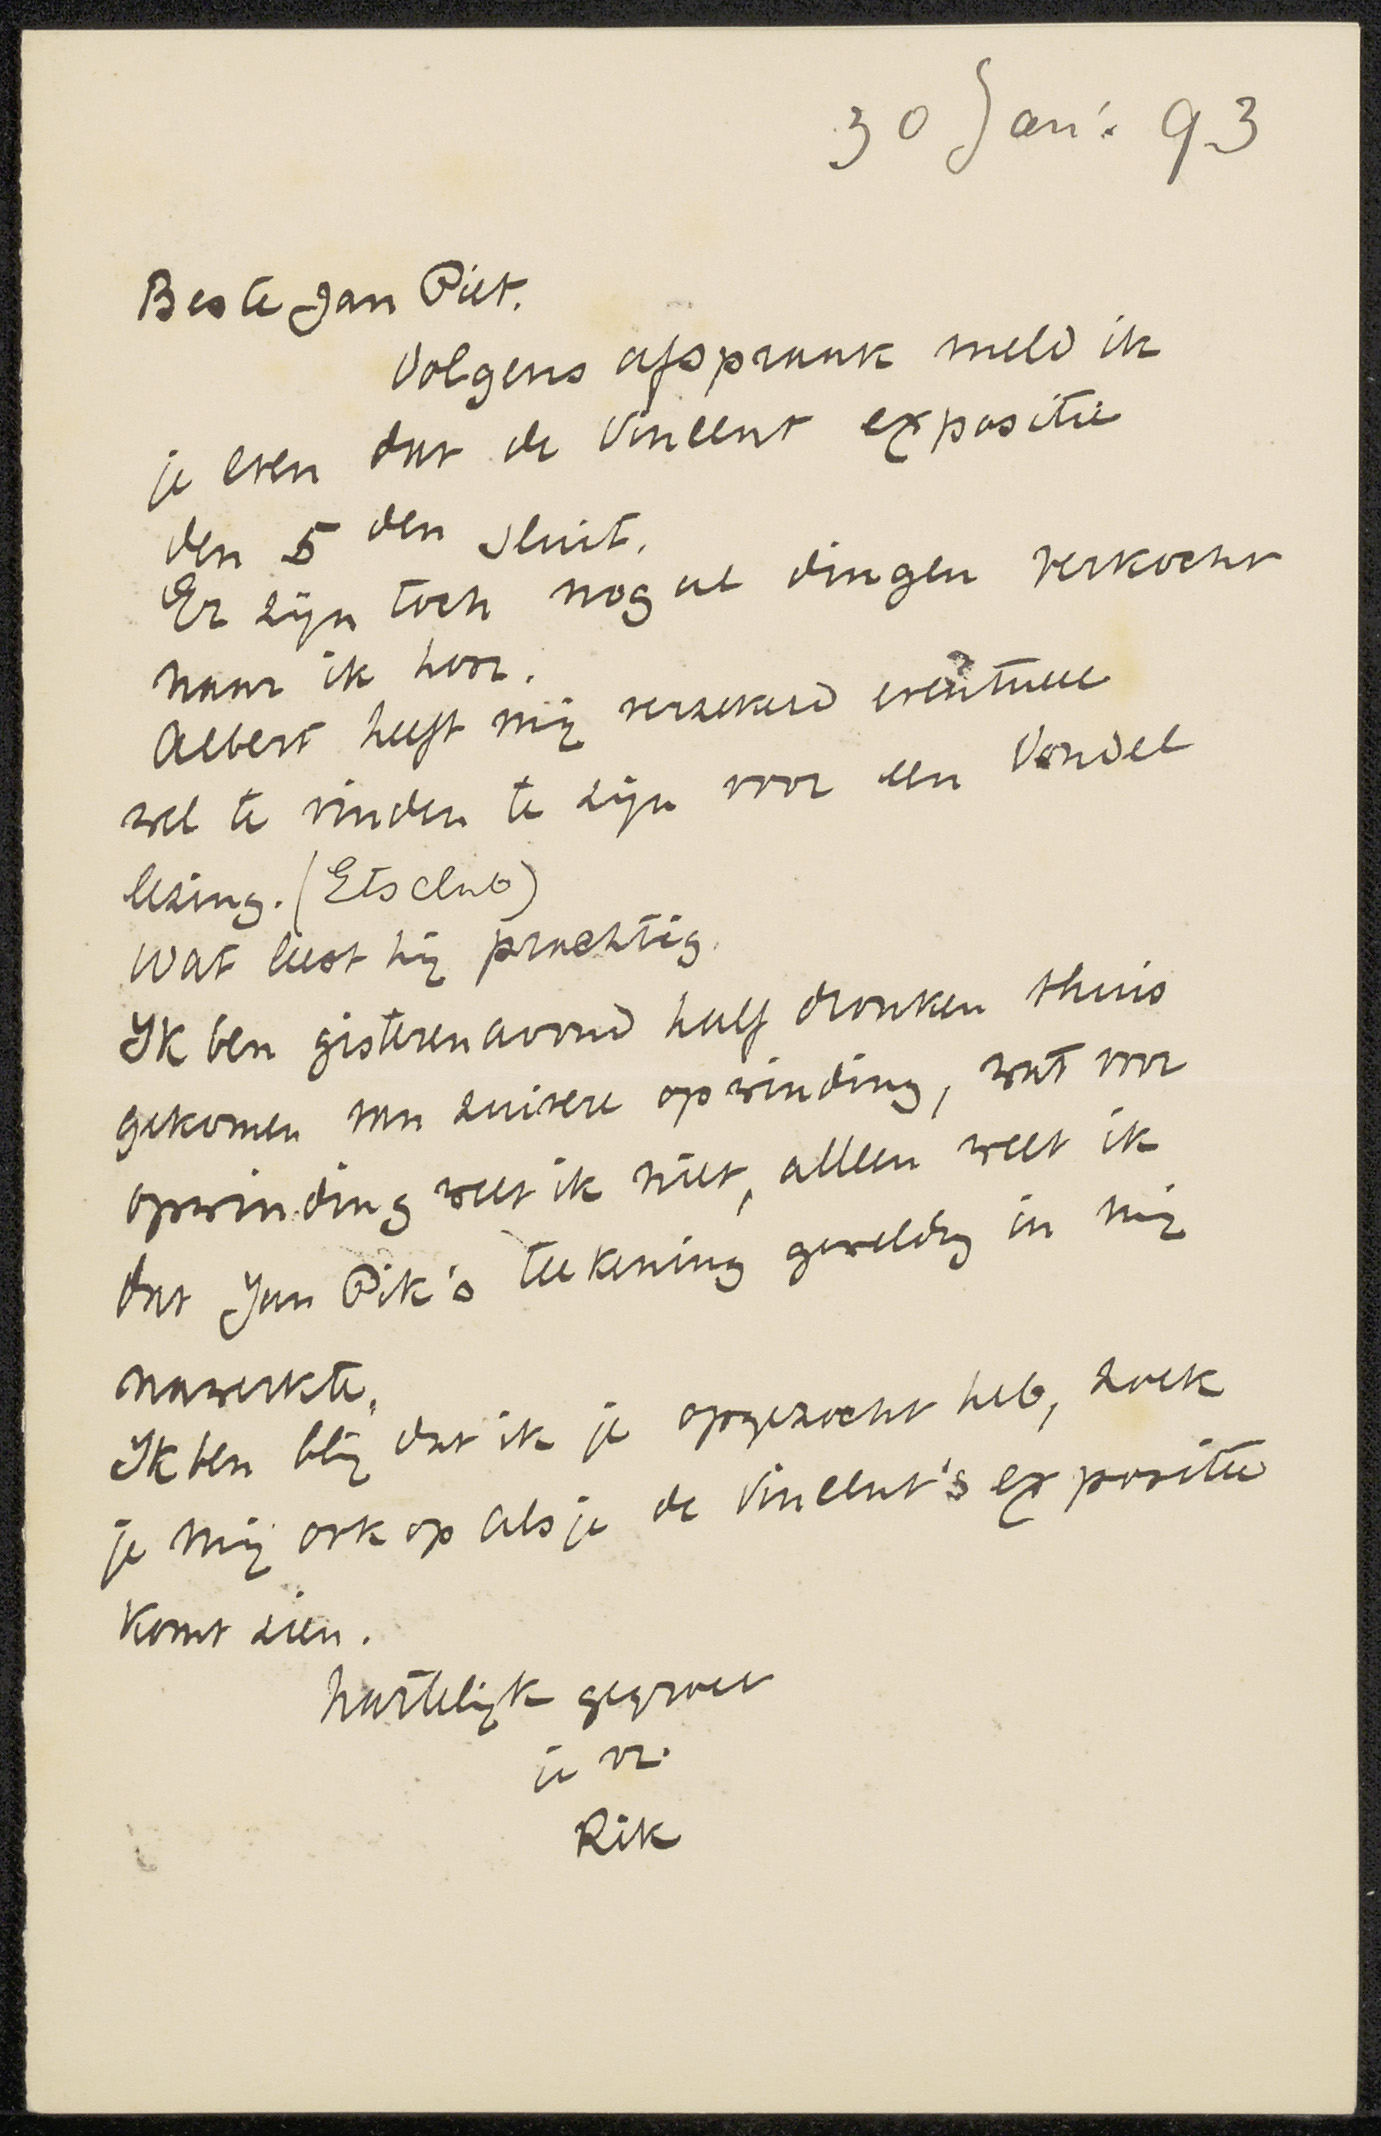 30 Jan: 93
Beste Jan Piet.
Volgens afspraak meld ik
je even dat de Vincent expositie
den 5 den sluit.
Er zijn toch nog al dingen verkocht
naar ik hoor.
Albert heeft mij verzekerd eventueel
wel te vinden te zijn voor een Vondel
lezing. (Etsclub)
Wat leest hij prachtig.
Ik ben gisterenavond half dronken thuis
gekomen van zuivere opwinding, wat voor
opwinding weet ik niet, alleen weet ik
dat Jan Pik's teekening geweldig in mij
nawerkte.
Ik ben blij dat ik je opgezocht heb, zoek
je mij ook op als je de Vincent's expositie
komt zien.
hartelijk gegroet
je vr.
Rik